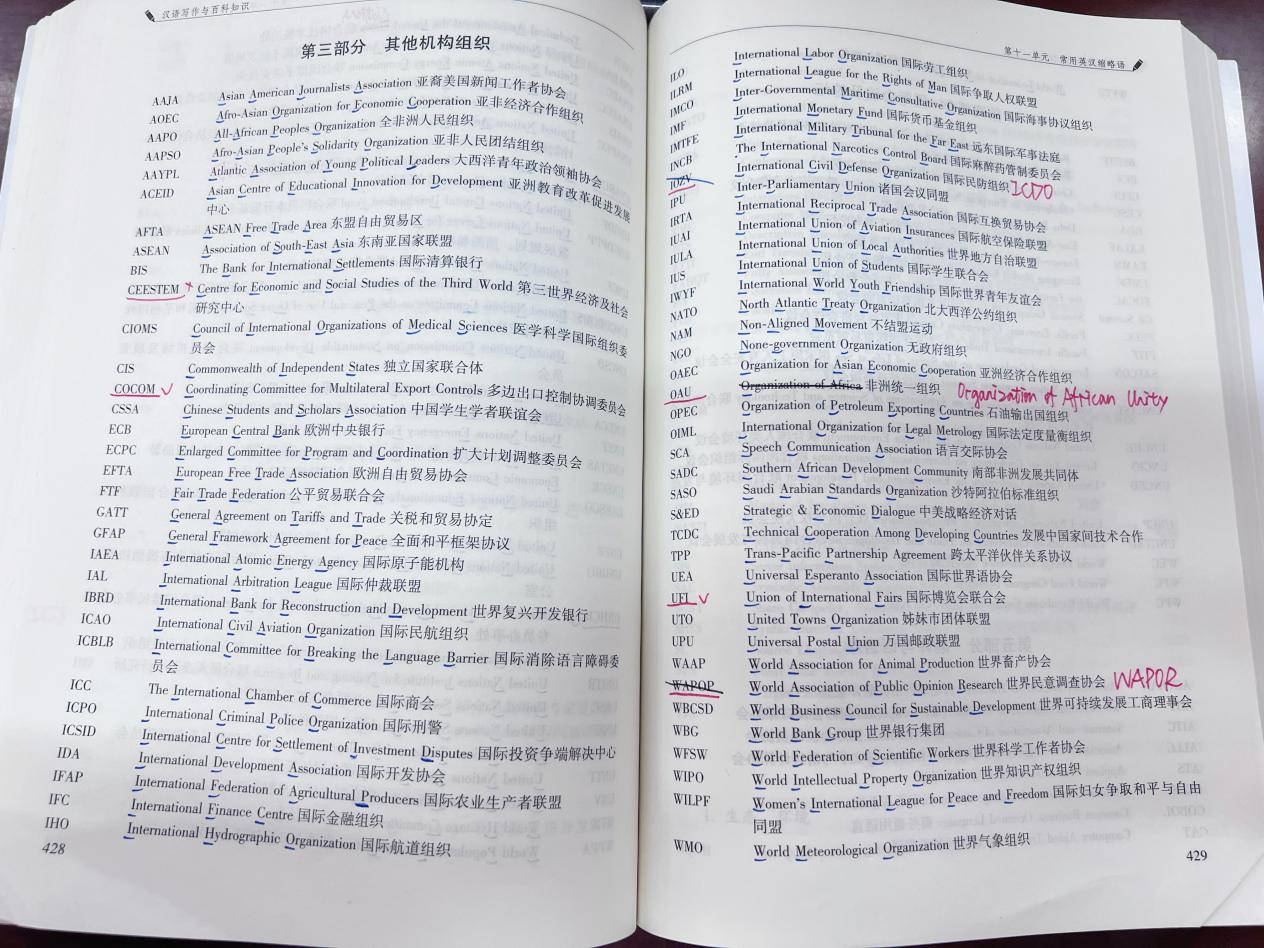 汉语写作与百科知识
第三部分 其他机构组织
AAJA Asian American Journalists Association 亚裔美国新闻工作者协会
AOEC Afro-Asian Organization for Economic Cooperation 亚非经济合作组织
AAPO All-African Peoples Organization 全非洲人民组织
AAPSO Afro-Asian People's Solidarity Organization 亚非人民团结组织
AAYPL Atlantic Association of Young Political Leaders 大西洋青年政治领袖协会
ACEID Asian Centre of Educational Innovation for Development 亚洲教育改革促进发展
中心
AFTA ASEAN Free Trade Area 东盟自由贸易区
ASEAN Association of South-East Asia 东南亚国家联盟
BIS The Bank for International Settlements 国际清算银行
CEESTEM Centre for Economic and Social Studies of the Third World 第三世界经济及社会
研究中心
CIOMS Council of International Organizations of Medical Sciences 医学科学国际组织委
员会
CIS Commonwealth of Independent States 独立国家联合体
COCOM ✓ Coordinating Committee for Multilateral Export Controls 多边出口控制协调委员会
CSSA Chinese Students and Scholars Association 中国学生学者联谊会
ECB European Central Bank 欧洲中央银行
ECPC Enlarged Committee for Program and Coordination 扩大计划调整委员会
EFTA European Free Trade Association 欧洲自由贸易协会
FTF Fair Trade Federation 公平贸易联合会
GATT General Agreement on Tariffs and Trade 关税和贸易协定
GFAP General Framework Agreement for Peace 全面和平框架协议
IAEA International Atomic Energy Agency 国际原子能机构
IAL International Arbitration League 国际仲裁联盟
IBRD International Bank for Reconstruction and Development 世界复兴开发银行
ICAO International Civil Aviation Organization 国际民航组织
ICBLB International Committee for Breaking the Language Barrier 国际消除语言障碍委
员会
ICC The International Chamber of Commerce 国际商会
ICPO International Criminal Police Organization 国际刑警
ICSID International Centre for Settlement of Investment Disputes 国际投资争端解决中心
IDA International Development Association 国际开发协会
IFAP International Federation of Agricultural Producers 国际农业生产者联盟
IFC International Finance Centre 国际金融组织
IHO International Hydrographic Organization 国际航道组织
428
第十一单元 常用英汉缩略语
ILO International Labor Organization 国际劳工组织
ILRM International League for the Rights of Man 国际争取人权联盟
IMCO Inter-Governmental Maritime Consultative Organization 国际海事协议组织
IMF International Monetary Fund 国际货币基金组织
IMTFE International Military Tribunal for the Far East 远东国际军事法庭
INCB The International Narcotics Control Board 国际麻醉药管制委员会
IOZV International Civil Defense Organization 国际民防组织 ICDO
IPU Inter-Parliamentary Union 诸国会议同盟
IRTA International Reciprocal Trade Association 国际互换贸易协会
IUAI International Union of Aviation Insurances 国际航空保险联盟
IULA International Union of Local Authorities 世界地方自治联盟
IUS International Union of Students 国际学生联合会
IWYF International World Youth Friendship 国际世界青年友谊会
NATO North Atlantic Treaty Organization 北大西洋公约组织
NAM Non-Aligned Movement 不结盟运动
NGO None-government Organization 无政府组织
OAEC Organization for Asian Economic Cooperation 亚洲经济合作组织
OAU Organization of Africa 非洲统一组织 Organization of African Unity
OPEC Organization of Petroleum Exporting Countres 石油输出国组织
OIML International Organization for Legal Metrology 国际法定度量衡组织
SCA Speech Communication Association 语言交际协会
SADC Southern African Development Community 南部非洲发展共同体
SASO Saudi Arabian Standards Organization 沙特阿拉伯标准组织
S&ED Strategic & Economic Dialogue 中美战略经济对话
TCDC Technical Cooperation Among Developing Countries 发展中国家间技术合作
TPP Trans-Pacific Partnership Agreement 跨太平洋伙伴关系协议
UEA Universal Esperanto Association 国际世界语协会
UFI ✓ Union of International Fairs 国际博览会联合会
UTO United Towns Organization 姊妹市团体联盟
UPU Universal Postal Union 万国邮政联盟
WAAP World Association for Animal Production 世界畜产协会
WAPOP World Association of Public Opinion Research 世界民意调查协会 WAPOR
WBCSD World Business Council for Sustainable Development 世界可持续发展工商理事会
WBG World Bank Group 世界银行集团
WFSW World Federation of Scientific Workers 世界科学工作者协会
WIPO World Intellectual Property Organization 世界知识产权组织
WILPF Women's International League for Peace and Freedom 国际妇女争取和平与自由
同盟
WMO World Meteorological Organization 世界气象组织
429